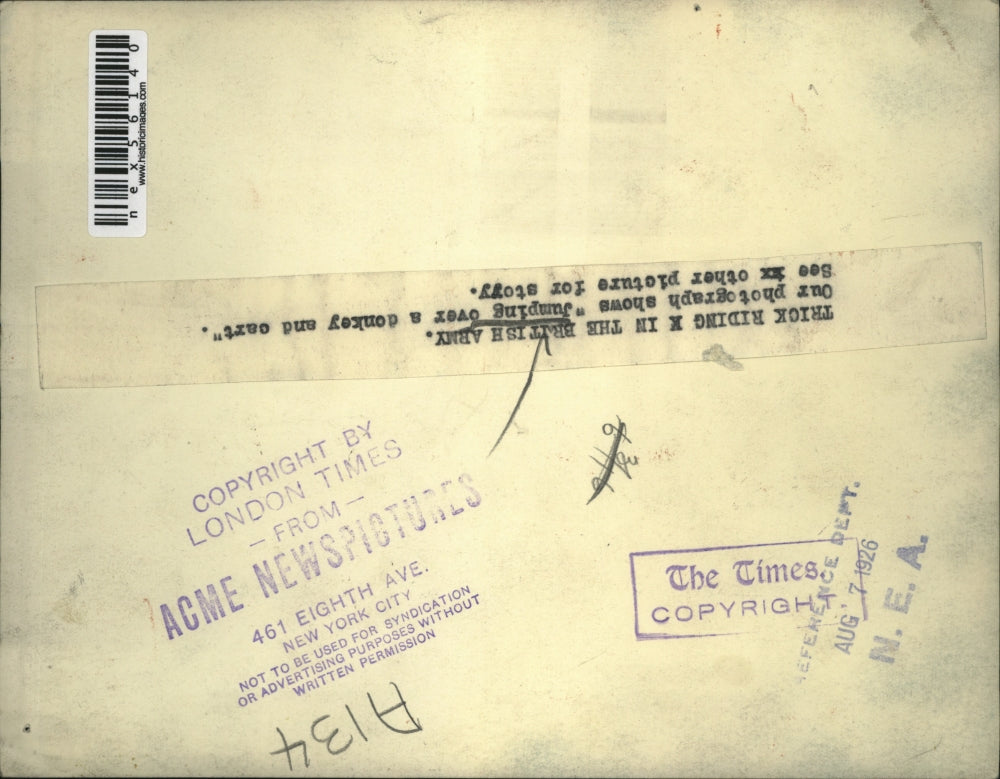 n e x 5 6 1 4 0
www.historicimages.com
TRICK RIDING X IN THE BRITISH ARMY.
Our photograph shows "Jumping over a donkey and cart".
See xx other picture for story.
COPYRIGHT BY
LONDON TIMES
— FROM —
ACME NEWSPICTURES
461 EIGHTH AVE.
NEW YORK CITY
NOT TO BE USED FOR SYNDICATION
OR ADVERTISING PURPOSES WITHOUT
WRITTEN PERMISSION
The Times
COPYRIGHT
REFERENCE DEPT.
AUG 7 1926
N. E. A.
A134